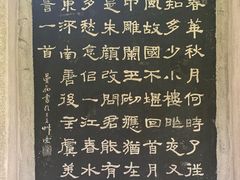 春華秋月何時了往
知多少小樓昨夜又
風故國不堪回首月
中雕闌玉砌應猶在
是朱顏改問君能有
多愁恰似一江春水
東流南唐後主虞美
一首